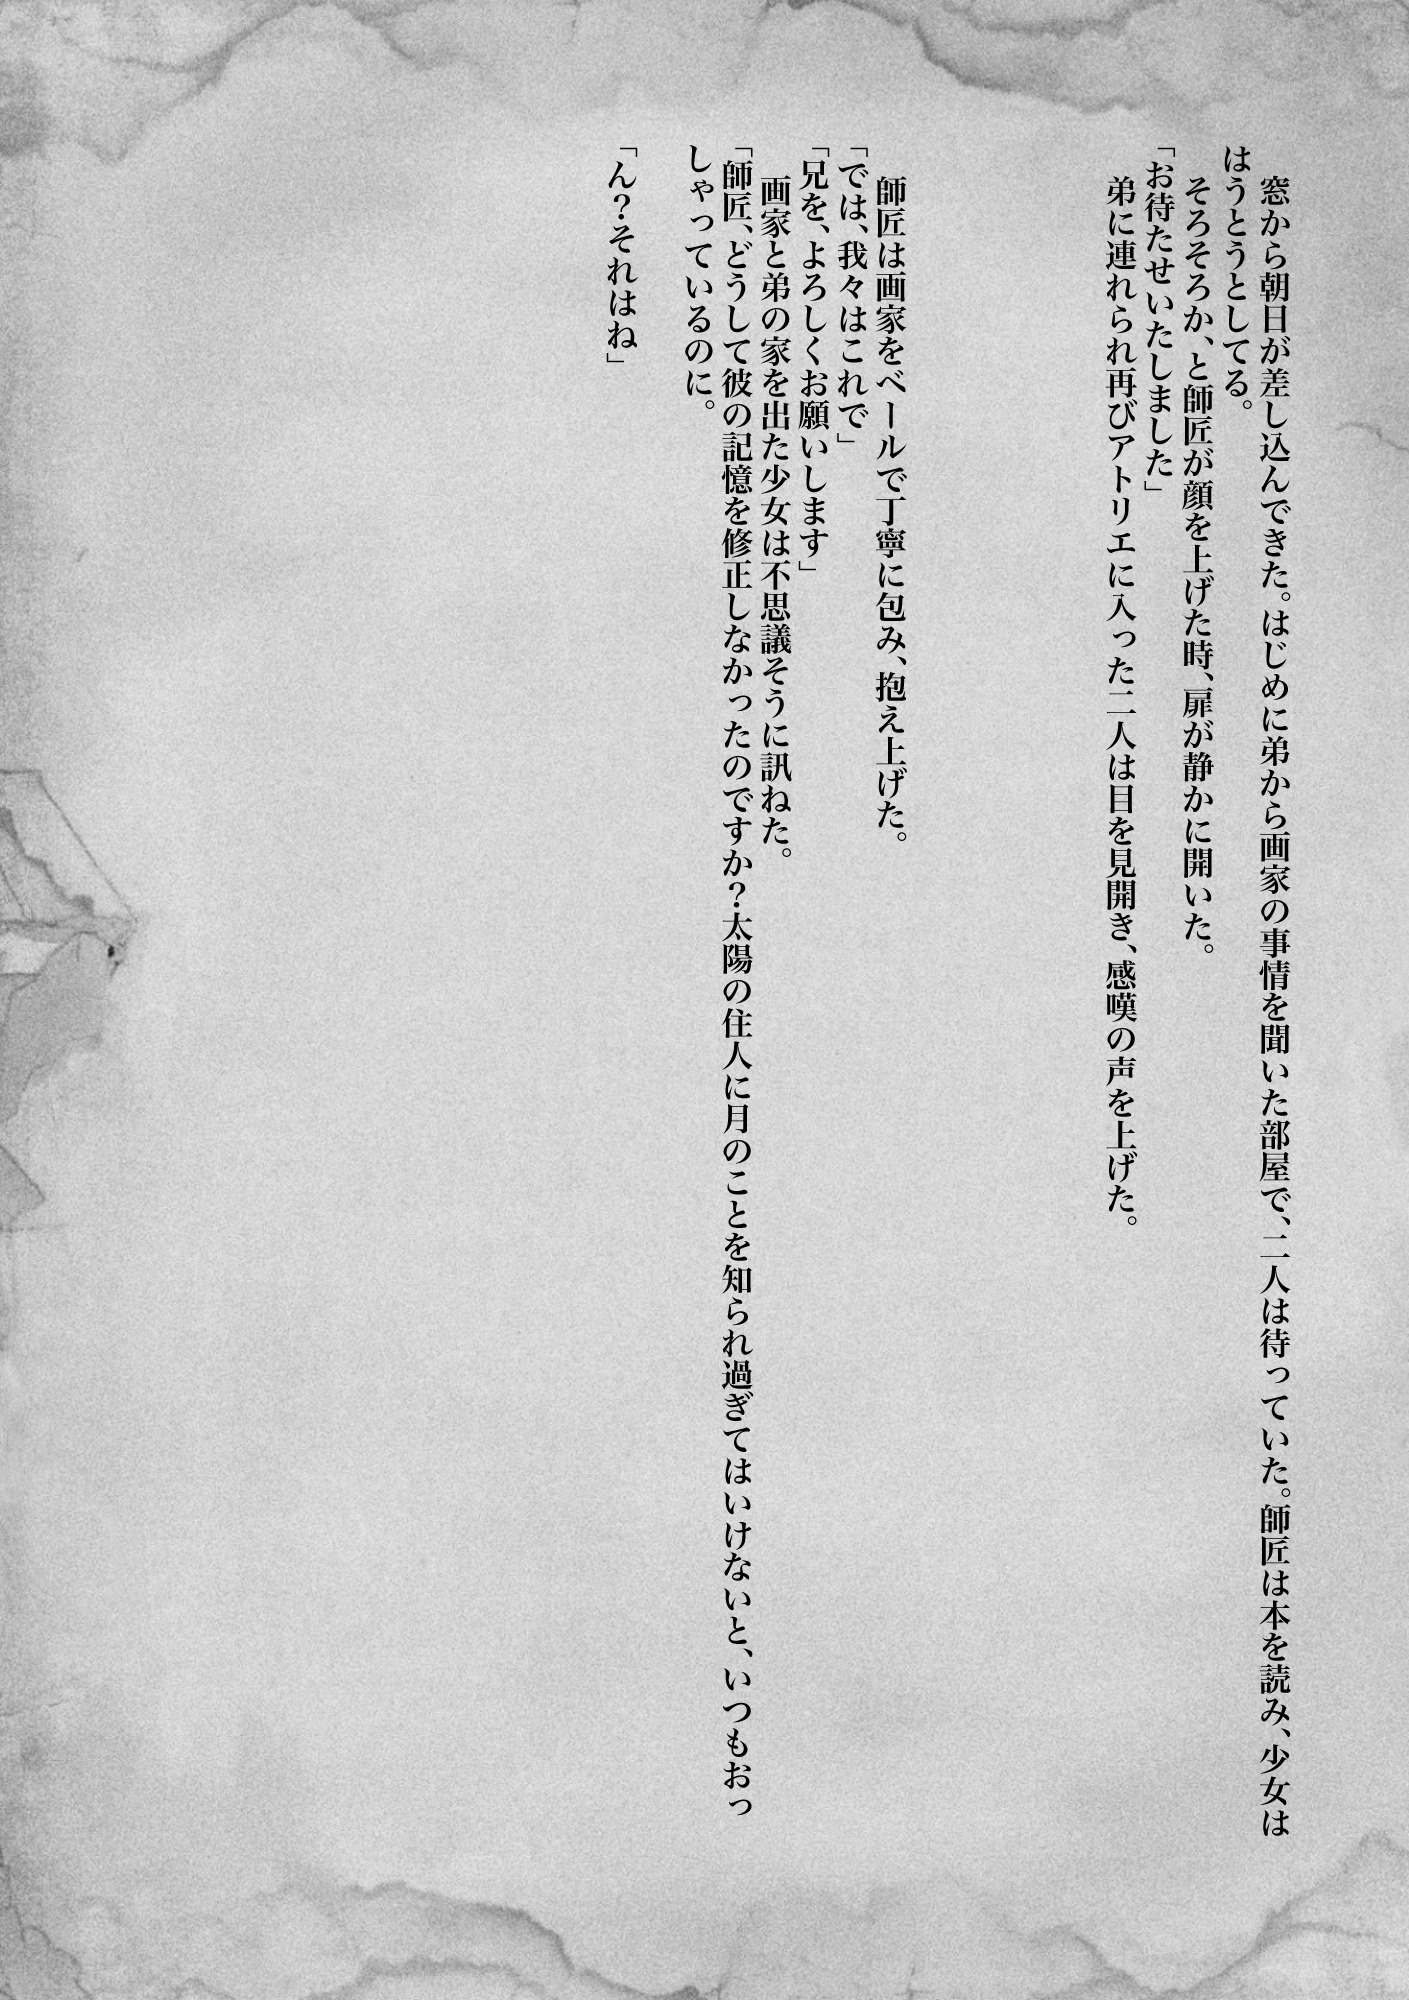 窓から朝日が差し込んできた。はじめに弟から画家の事情を聞いた部屋で、二人は待っていた。師匠は本を読み、少女は
はうとうとしてる。
そろそろか、と師匠が顔を上げた時、扉が静かに開いた。
「お待たせいたしました」
弟に連れられ再びアトリエに入った二人は目を見開き、感嘆の声を上げた。
師匠は画家をベールで丁寧に包み、抱え上げた。
「では、我々はこれで」
「兄を、よろしくお願いします」
画家と弟の家を出た少女は不思議そうに訊ねた。
「師匠、どうして彼の記憶を修正しなかったのですか？太陽の住人に月のことを知られ過ぎてはいけないと、いつもおっ
しゃっているのに。
「ん？それはね」